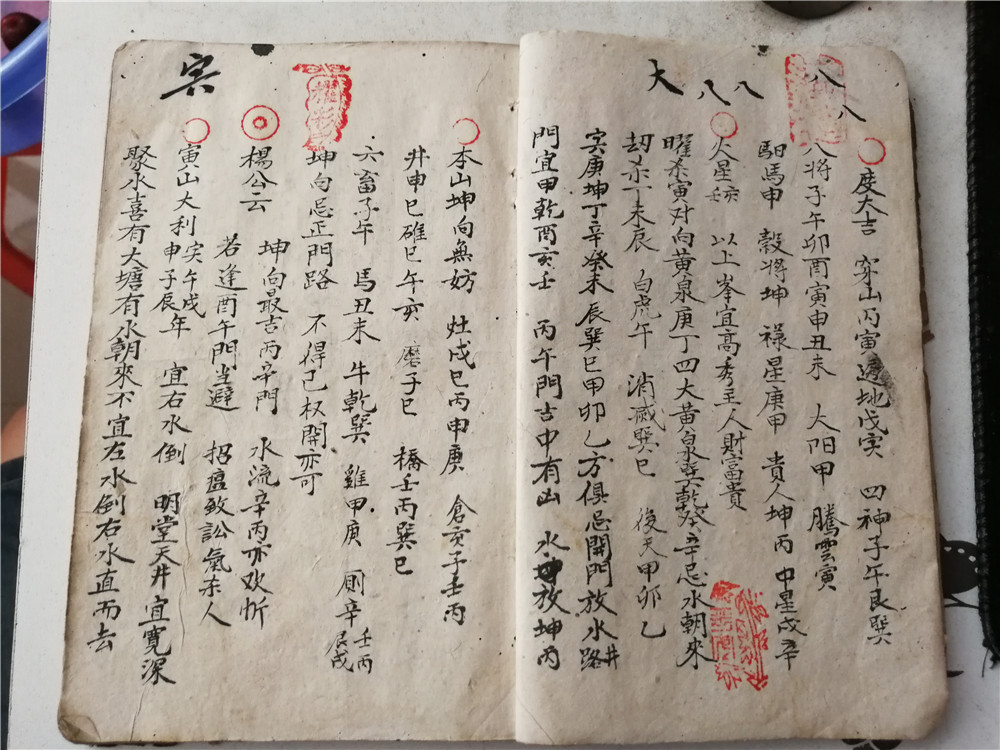 大 八 八 八 八
度大吉 穿山丙寅 透地戊寅 四神子午艮巽
八将子午卯酉寅申丑未 大阳甲 騰雲寅
馹馬申 榖将坤 禄星庚甲 貴人坤丙 中星戍辛
火星亥壬 以上峯宜高秀主人財富貴
曜杀寅对向黄泉庚丁四大黄泉巽乾癸辛忌水朝來
刧杀丁未辰 白虎午 消滅巽巳 後天甲卯乙
寅庚坤丁辛癸未辰巽巳甲卯乙方俱忌開門放水路井
門宜甲乾酉亥壬 丙午門吉中有凶 水放坤丙
本山坤向無妨 灶戍巳丙申庚 倉亥子壬丙
井申巳碓巳午亥 磨子巳 橋壬丙巽巳
六畜子午 馬丑未 牛乾巽 雞甲庚 厠辛壬丙辰戍
坤向忌正門路 不得已权開亦可
楊公云 坤向最吉丙辛門 水流辛丙亦欢忻
若逢酉午門当避 招瘟致訟氣杀人
寅山大利寅午戍申子辰年 宜右水倒 明堂天井宜寬深
聚水喜有大塘有水朝來不宜左水倒右水直而去
寅